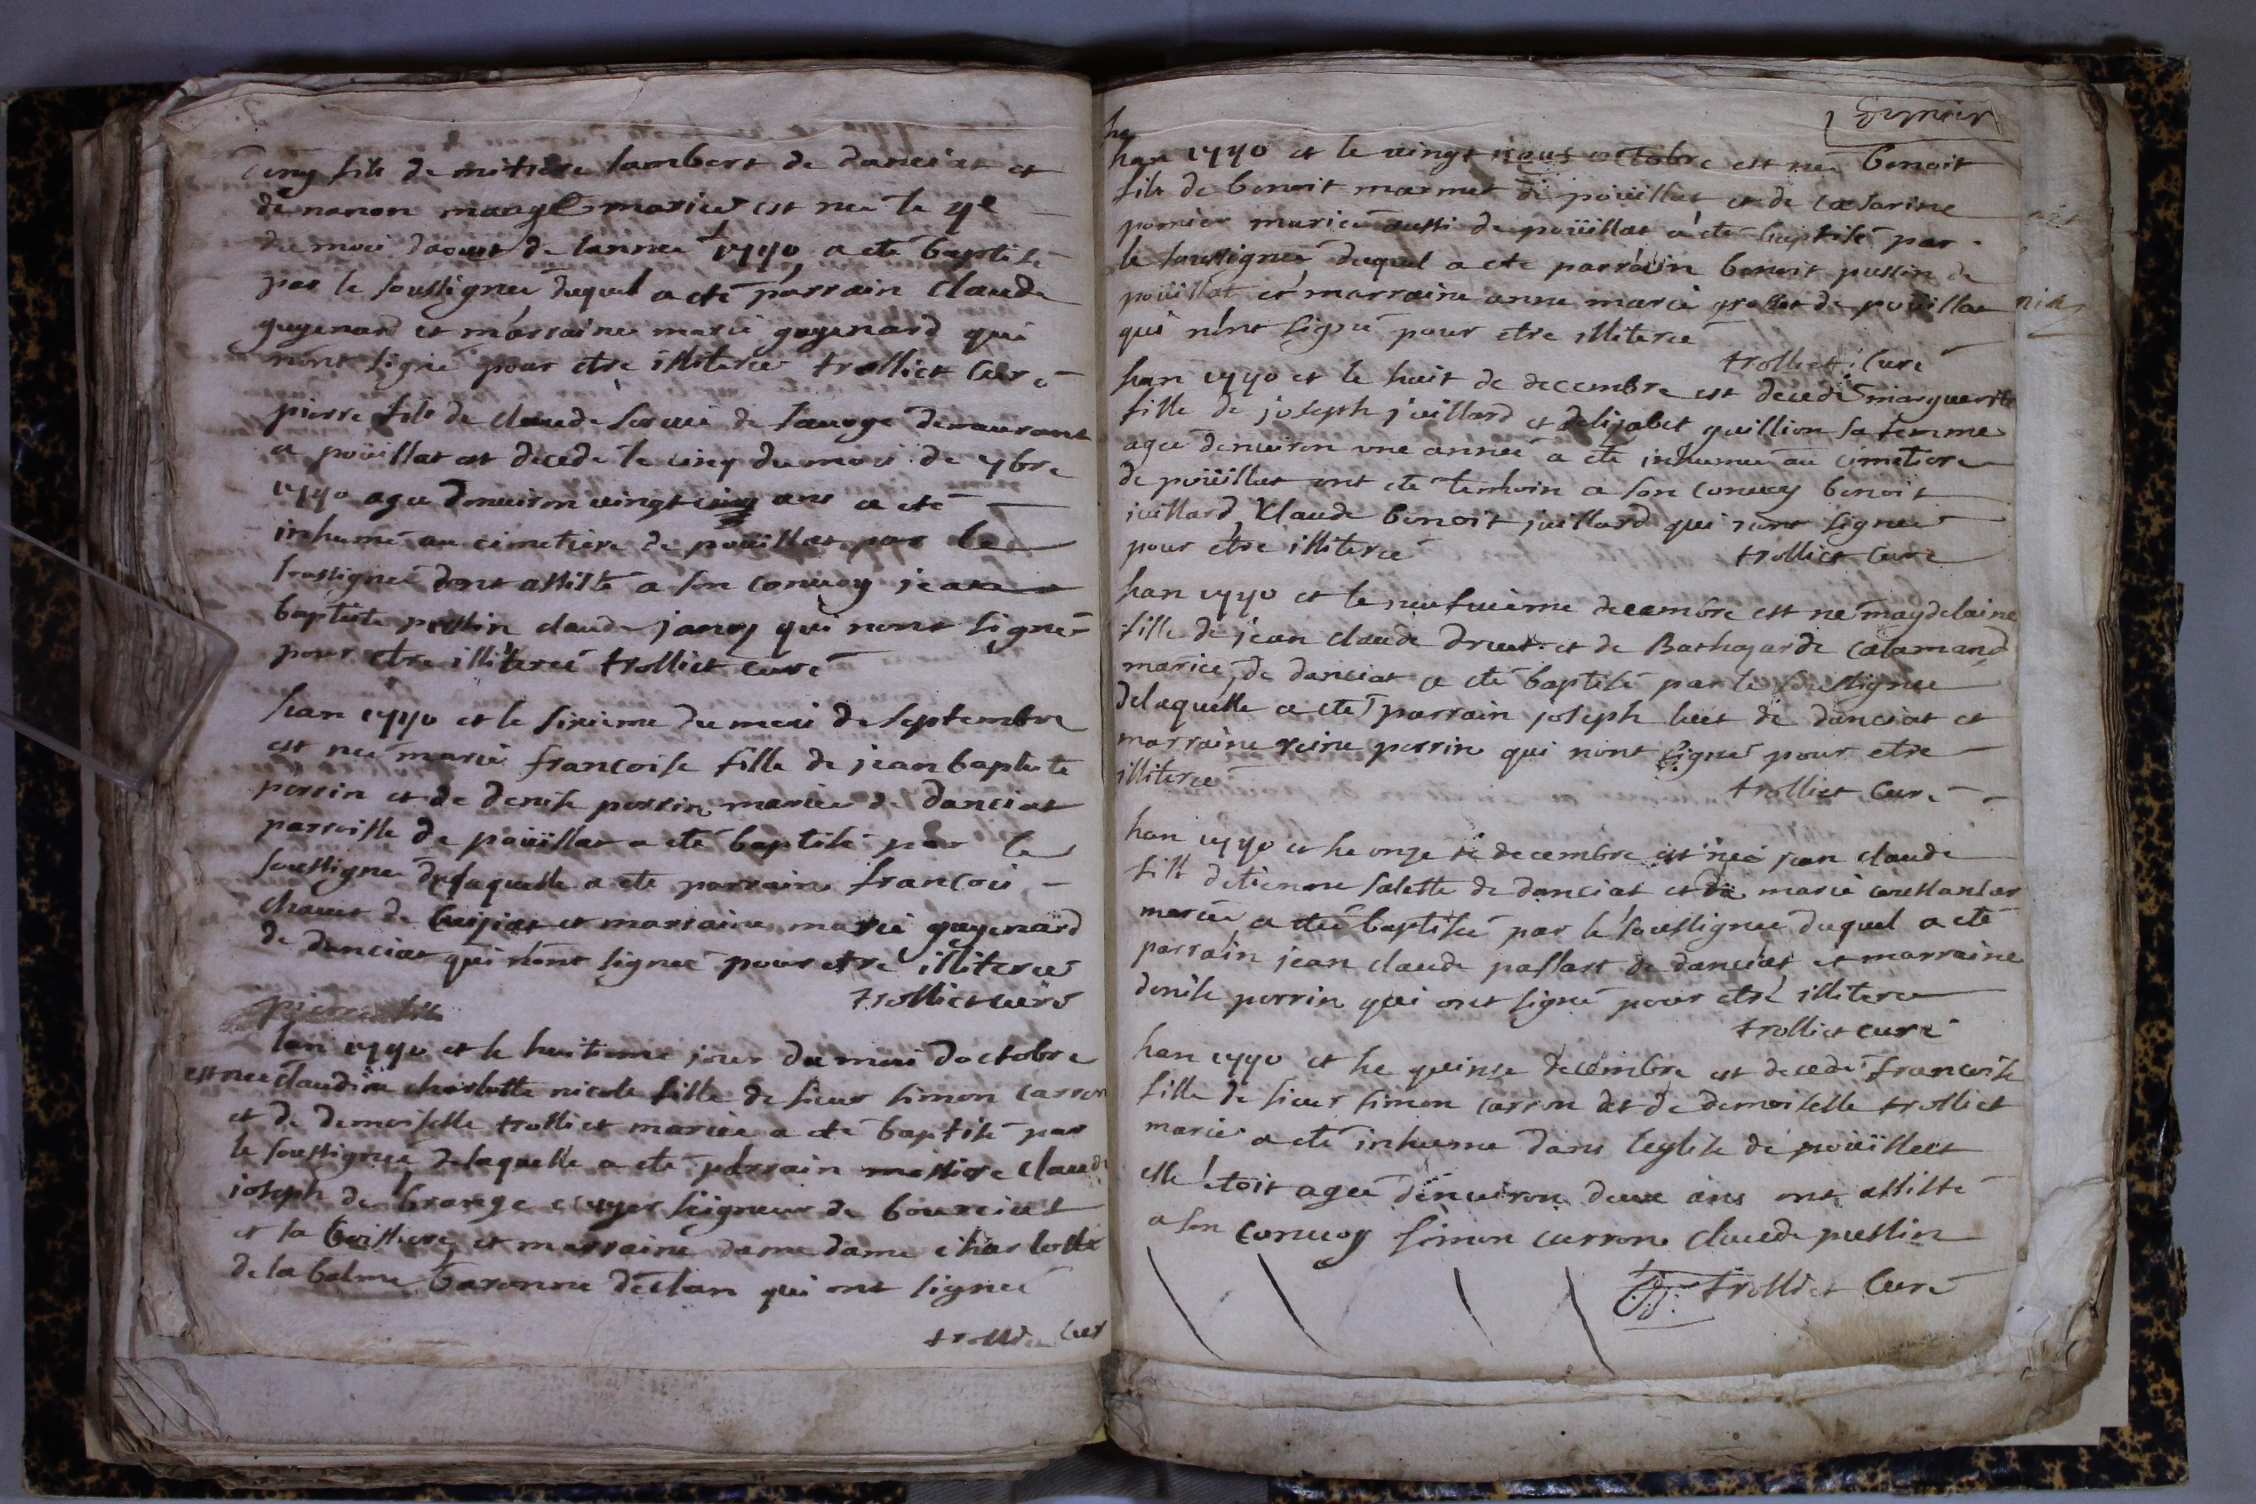 fils de mitiere lambert de danciat et
de nanon mariés est né le
du mois daoust de lannee 1740 a eté baptisé
par le soussigné duquel a eté parrain claude
guyenard et marraine marie guyenard qui
nont signé pour etre illiteréé trolliet curé
pierre fils de claude de demeurant
a poüillat est decedé le cinq du mois de 7bre
1740 agé denviron vingt cinq ans a eté
inhumé au cimetiere de poüillat par le
soussigné dont assisté a son convoy jean
baptiste pussin claude janoy qui nont signé
pour etre illiteréé trolliet curé
lan 1740 et le sixieme du mois de septembre
est née marie francoise fille de jean baptiste
perrin et de denise perrin mariés de danciat
parroisse de poüillat a eté baptisé par le
soussigné de laquelle a eté parrain francois
de et marraine marie guyenard
de danciat qui nont signé pour etre illiteréé
trolliet curé
pierre fils
lan 1740 et le huitieme jour du mois doctobre
est née claudine charlotte nicole fille de sieur simon carron
et de demoiselle trolliet mariés a eté baptisé par
le soussigné de laquelle a eté parrain messire claude
joseph de grange ecuyer seigneur de
et la boissiere et marraine dame dame charlotte
de la balme baronne qui ont signé
trolliet cur
lan 1740 et le vingt octobre est né benoit
fils de benoit marmet de poüillat et de catarine
mariés aussi de poüillat a eté baptisé par
le soussigné duquel a eté parrain benoit pussin de
poüillat et marraine anne marie de poüillat
qui nont signé pour etre illiteréé
trolliet curé
lan 1740 et le huit de decembre est decedé marguerite
fille de joseph juillard et delizabet guillion sa femme
agée denviron une année a eté inhumée au cimetiere
de poüillat ont eté temoin a son convoy benoit
juillard claude benoit juillard qui nont signé
pour etre illiteréé trolliet curé
lan 1740 et le neufvieme decembre est né magdelaine
fille de jean claude et de calamand
mariés de danciat a eté baptisé par le soussigné
de laquelle a eté parrain joseph de danciat et
marraine reine perrin qui nont signé pour etre
illiteréé trolliet curé
lan 1740 et le onze de decembre est né jean claude
fils detienne salette de danciat et de marie
mariés a eté baptisé par le soussigné duquel a eté
parrain jean claude de danciat et marraine
denise perrin qui ont signé pour etre illiteré
trolliet curé
lan 1740 et le quinze decembre est decedé francoise
fille de sieur simon carron et de demoiselle trolliet
mariés a eté inhumé dans leglise de poüillat
elle etoit agée denviron deux ans ont assisté
a son convoy simon carron claude pussin
trolliet curé